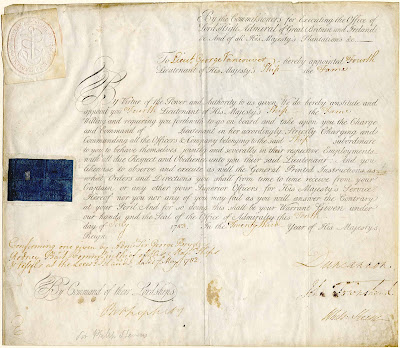 By the Commissioners for Executing the Office of
Lord High Admiral of Great Britain and Ireland
&c. And of all His Majesty's Plantations &c
To Lieut. George Vancouver hereby appointed Fourth
Lieutenant of His Majesty's Ship the Fame
By Virtue of the Power and Authority to us given We do hereby constitute and
appoint you Fourth Lieutenant of His Majesty's Ship the Fame
Willing and requiring you forthwith to go on board and take upon you the Charge
and Command of Lieutenant in her accordingly. Strictly Charging and
Commanding all the Officers & Company belonging to the said Ship subordinate
to you to behave themselves jointly and severally in their respective Employments
with all due Respect and Obedience unto you their said Lieutenant and you
likewise to observe and execute as well the General Printed Instructions as
what Orders and Directions you shall from time to time receive from your
Captain or any other your Superior Officers for His Majesty's Service
Hereof nor you nor any of you may fail as you will answer the Contrary
at your Peril And for so doing this shall be your Warrant Given under
our hands and the Seal of the Office of Admiralty this
day of July 1782 in the Year of His Majesty's
Reign.
Confirming one given by Admiral George Brydges
Rodney
1782
By Command of their Lordships